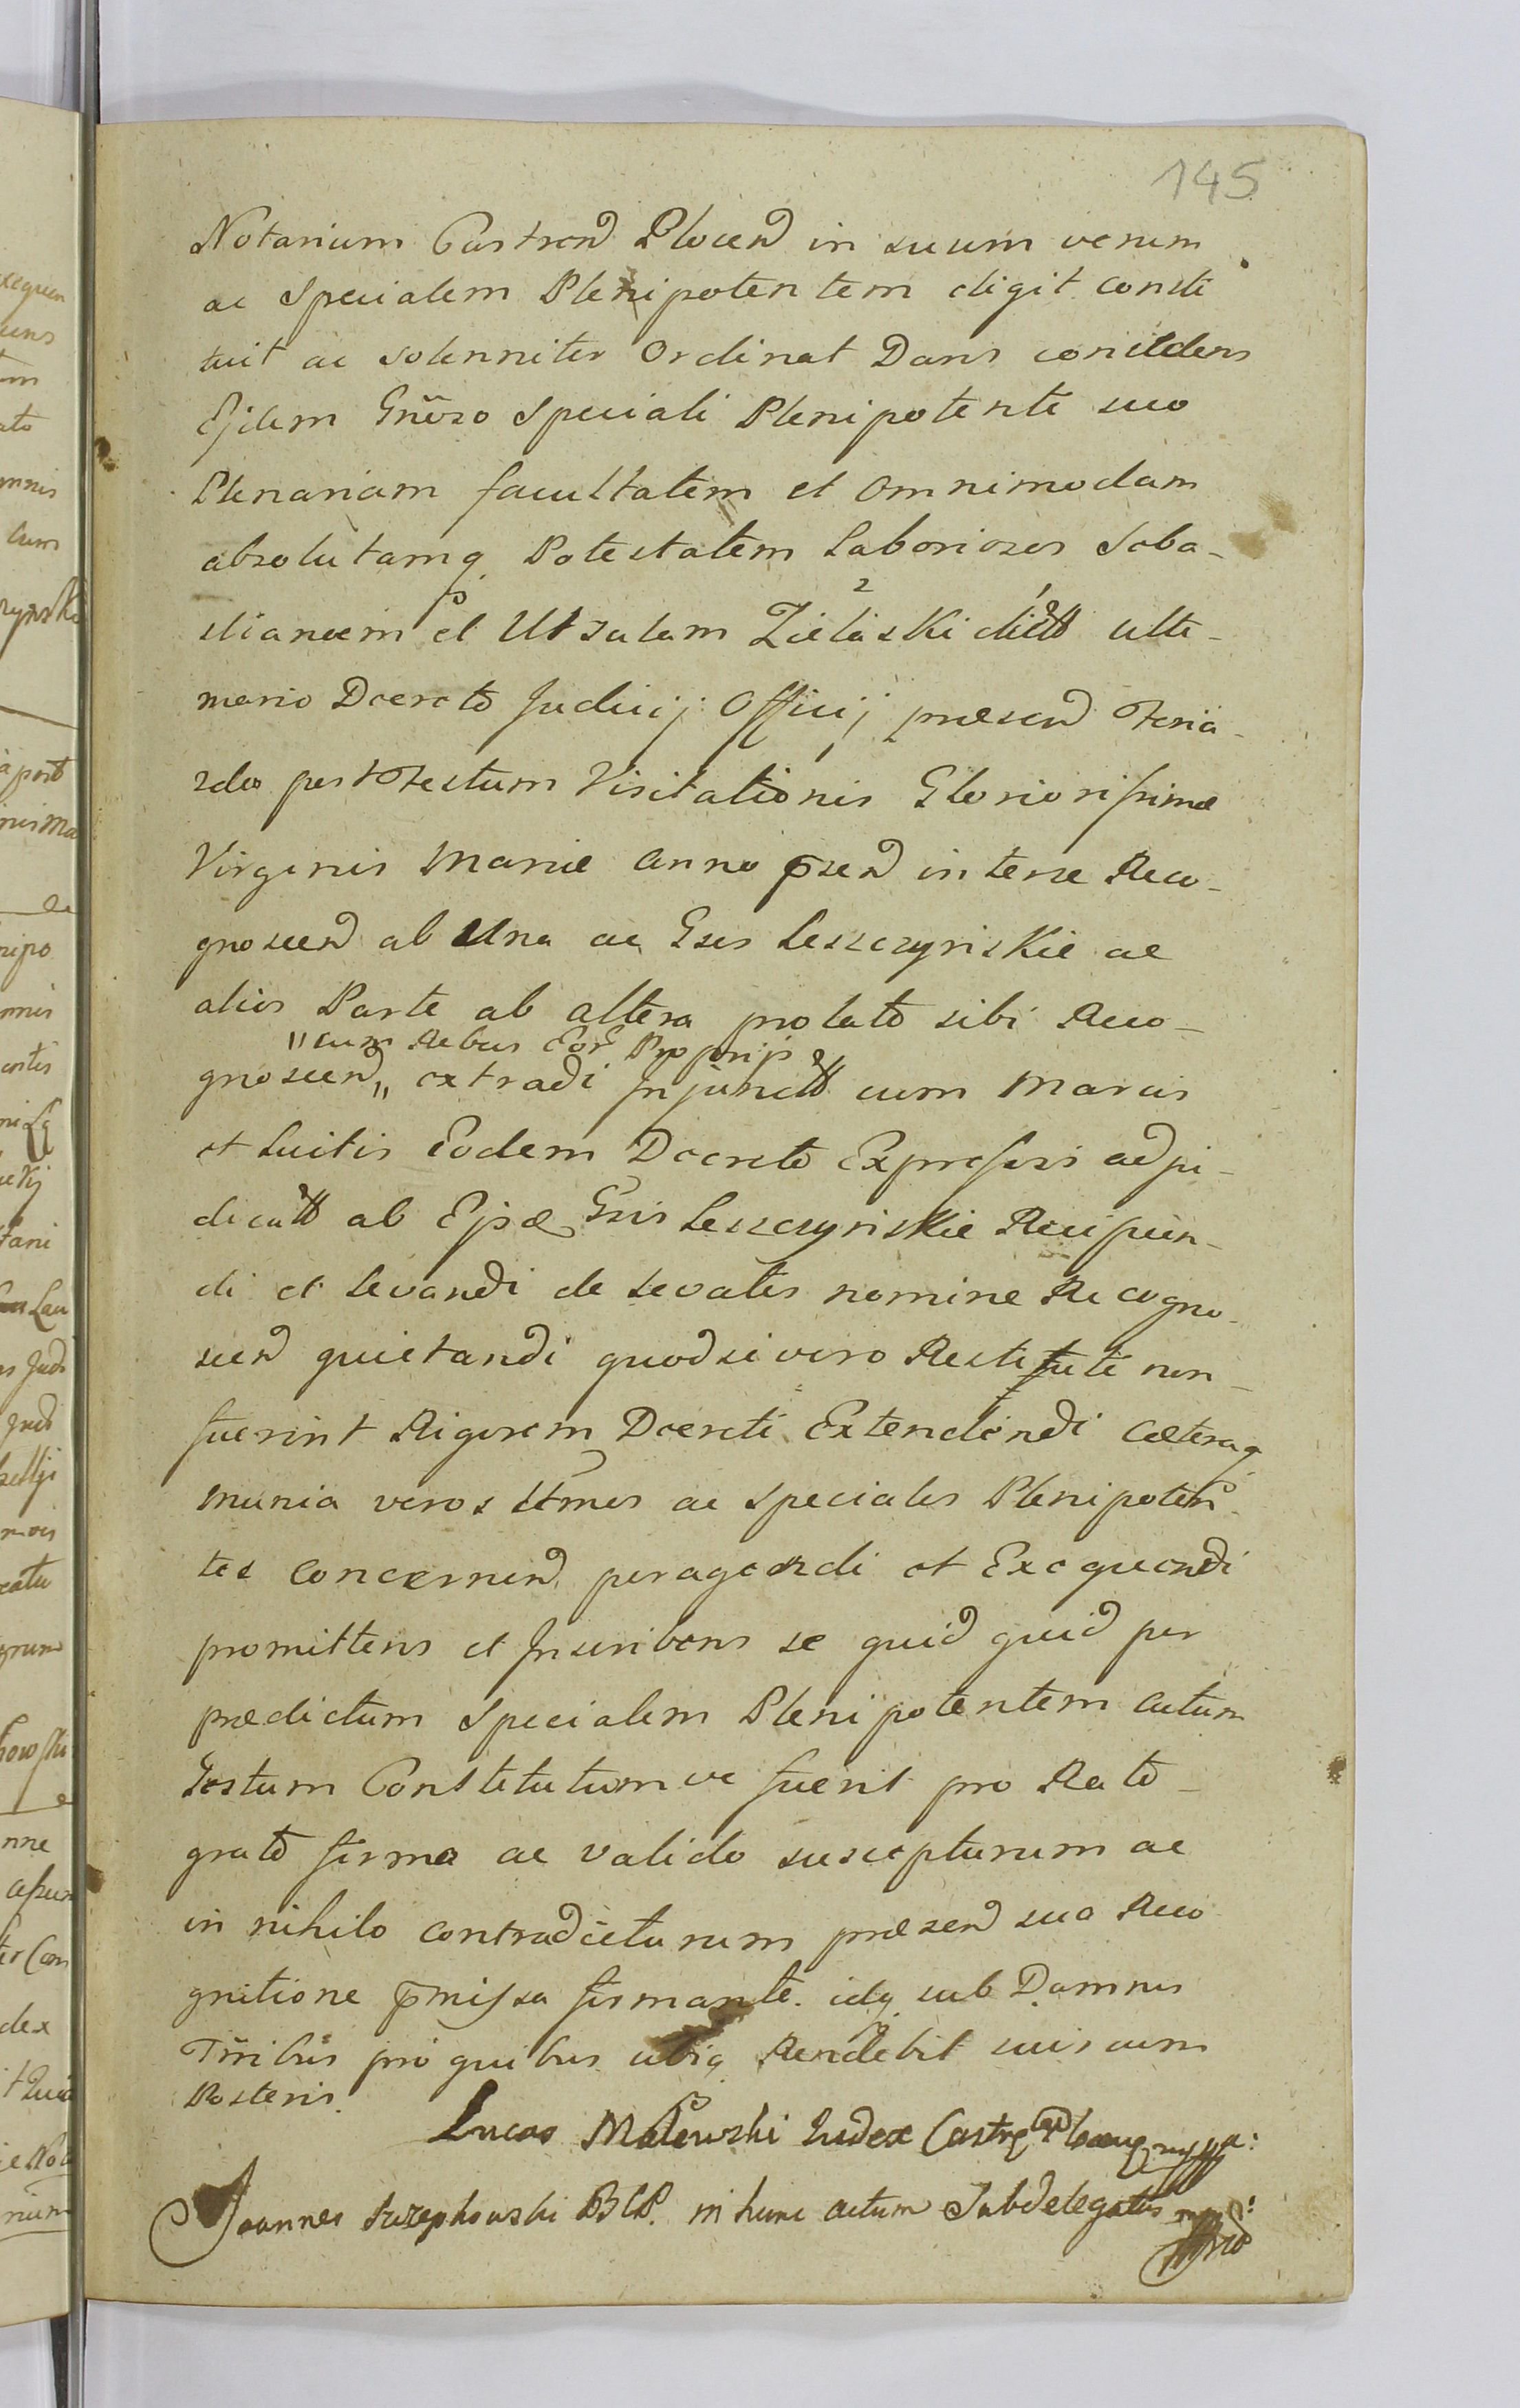 145
Notarium Castren Plocen in suum verum
ac Specialem Plenipotentem eligit consti
tuit ac solenniter Ordinat Dans concedens
Ejdem Gnõso Speciali Plenipotenti suo
Plenariam facultatem et omnimodam
absolutamq Potestatem Laboriosos Seba-
stianum et Ursulam Zielaski 2 dictt 1 ulti-
mario Decreto Judicij Officij præsen Feria
2da post Festum Visitationis Gloriosissimæ
Virginis Mariæ Anno p̃sen inter se Reco-
gnoscen ab Una ac Gsos Leszczynskie ac
alios Parte ab altera prolato sibi Reco-
"cum Rebus Eor Proprijs
gnoscen" extradi Injunctt cum Marcis
et Luitis Eodem Decreto Expressis adju-
dicatt ab Ejsd Gsis Leszczynskie Recipien-
di et Levandi de Levatis nomine Recogno-
scen quietandi quodsi vero Restituti non
fuerint Rigorem Decreti Extendendi Cæteraq
munia veros Ltmos ac speciales Plenipoten
tes concernen peragendi et Exequendi
promittens et Inscribens se quid quid per
prædictum Specialem Plenipotentem actum
Gestum Constitutumve fuerit pro Rato
grato firmo ac valido suscepturum ac
in nihilo contradicturum præsen sua Reco
gnitione p̃missa firmante. idq sub Damnis
Trribus pro quibus ubiq Rendebit suis cum
Posteris.
Lucas Malewski Judex Castrẽ mpp:
Joannes BCP. in hunc actum Subdelegatus mpp: